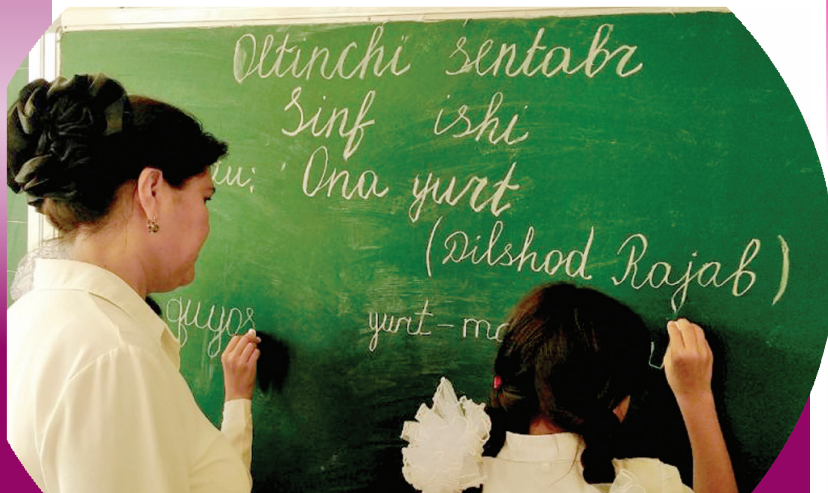 Oltinchi sentabr
Sinf ishi
Ona yurt
(Dilshod Rajab)
quyos yurt – mo